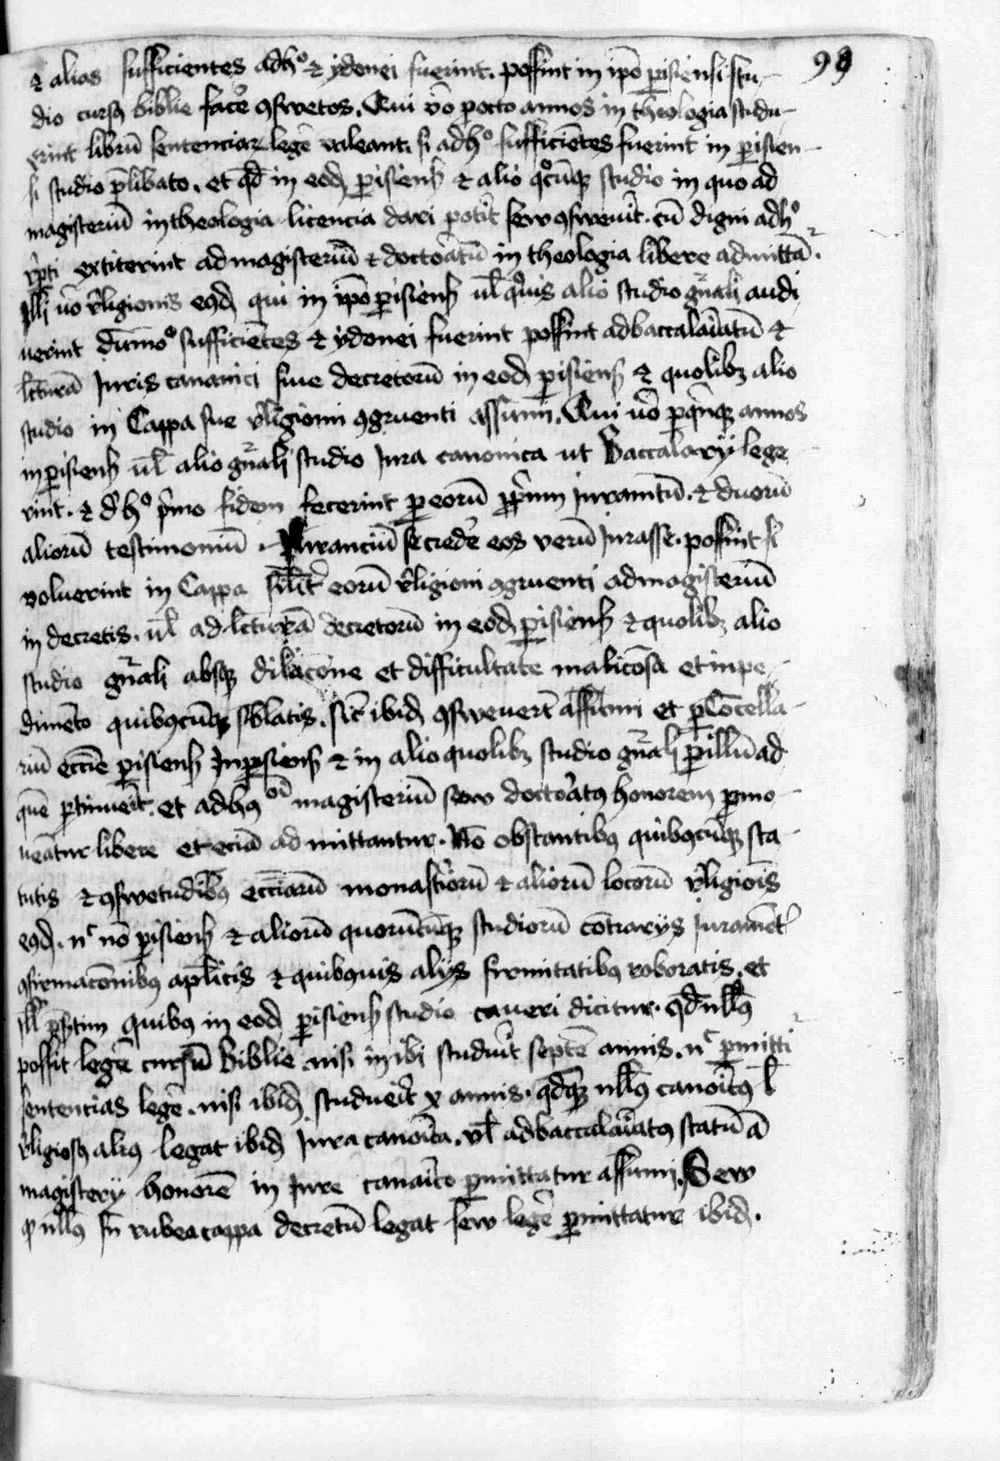 99
& alias sufficientes adhº & ydonei fuerint. possint in ipō pisiensi stu-
dio cursꝫ biblie facē ꝯswetos. Qui vō p octo annos in theologia studu-
erint librū sententiaꝝ legē valeant. si adhº sufficiētes fuerint in pisien-
si studio p̄libato. et qd̄ in eod̄ pisienſ & alio qºcūqꝫ studio in quo ad
magisteriū in theologia licencia dari potīt sew ꝯsweuīt. cū digni adhº
rep̄ti extiterint ad magisteriū & doctoatū in theologia libere admittār.
Illi uō religionis eiꝰd̄ qui in ipō pisienſ ul̄ quis alio studio gn̄ali audi
uerint dūmº sufficiētes & ydonei fuerint possint ad baccalaiatū &
lcturā Juris canonici siue decretorū in eod̄ pisienſ & quolibꝫ alio
studio in Cappa sue religioni ꝯgruenti assumi. Qui uō p qnqꝫ annos
in pisienſ ul̄ alio gn̄ali studio Jura canonica ut Baccalary lege
rint. & d̄hº p̄mo fidem fecerint p eorū pp̄rium Juramtū. & duorū
aliorū testimoniū Juranciū se credē eos verū Jurasse. possint si
voluerint in Cappa silīt eorū religioni ꝯgruenti ad magisteriū
in decretis. ul̄ ad lcturā decretorū in eod̄ pisienſ & quolibꝫ alio
studio gn̄ali absqꝫ dilacōne et difficultate malicōsa et inpe-
dimēto quibꝰcūqꝫ sblatis. sic̄ ibid̄ ꝯsweuert̄ assumi et p Cācella-
riū eccīe pisienſ In pisienſ & in alio quolibꝫ studio gn̄ali p illū ad
quē ptinueīt. et ad hꝰ oī magisteriū sew doctoatꝰ honorem pmo-
ueātur libere et eciā admittantur. Nō obstantibꝰ quibꝰcūqꝫ sta-
tutis & ꝯswetudibꝰ eccīarū monastiorū & aliorū locorū religiōis
eiꝰd̄. nc nō pisienſ & aliorū quorūcūqꝫ studiorū cōtrarys Juramēt
ꝯfirmacōnibꝰ aplicis & quibꝰuis alys firmitatibꝰ roboratis. et
ill p̄sertim quibꝰ in eod̄ pisienſ studio caueri dicitur. qd̄ nullꝰ
possit legē cursū Biblie nisi inibi studuīt septē annis. nc pmitti
sententias legē. nisi ibid̄ studueīt x annis. qd̄qꝫ nullꝰ canoicꝰ ł
religiosꝰ aliꝰ legat ibid̄ Jura canoica. vl̄ ad baccalaiatꝰ statū ā
magistery honorē in Jure canoico pmittatur assumi. Sew
ꝙ nullꝰ sn̄ rubea cappa decretū legat sew legē pmittatur ibid̄.